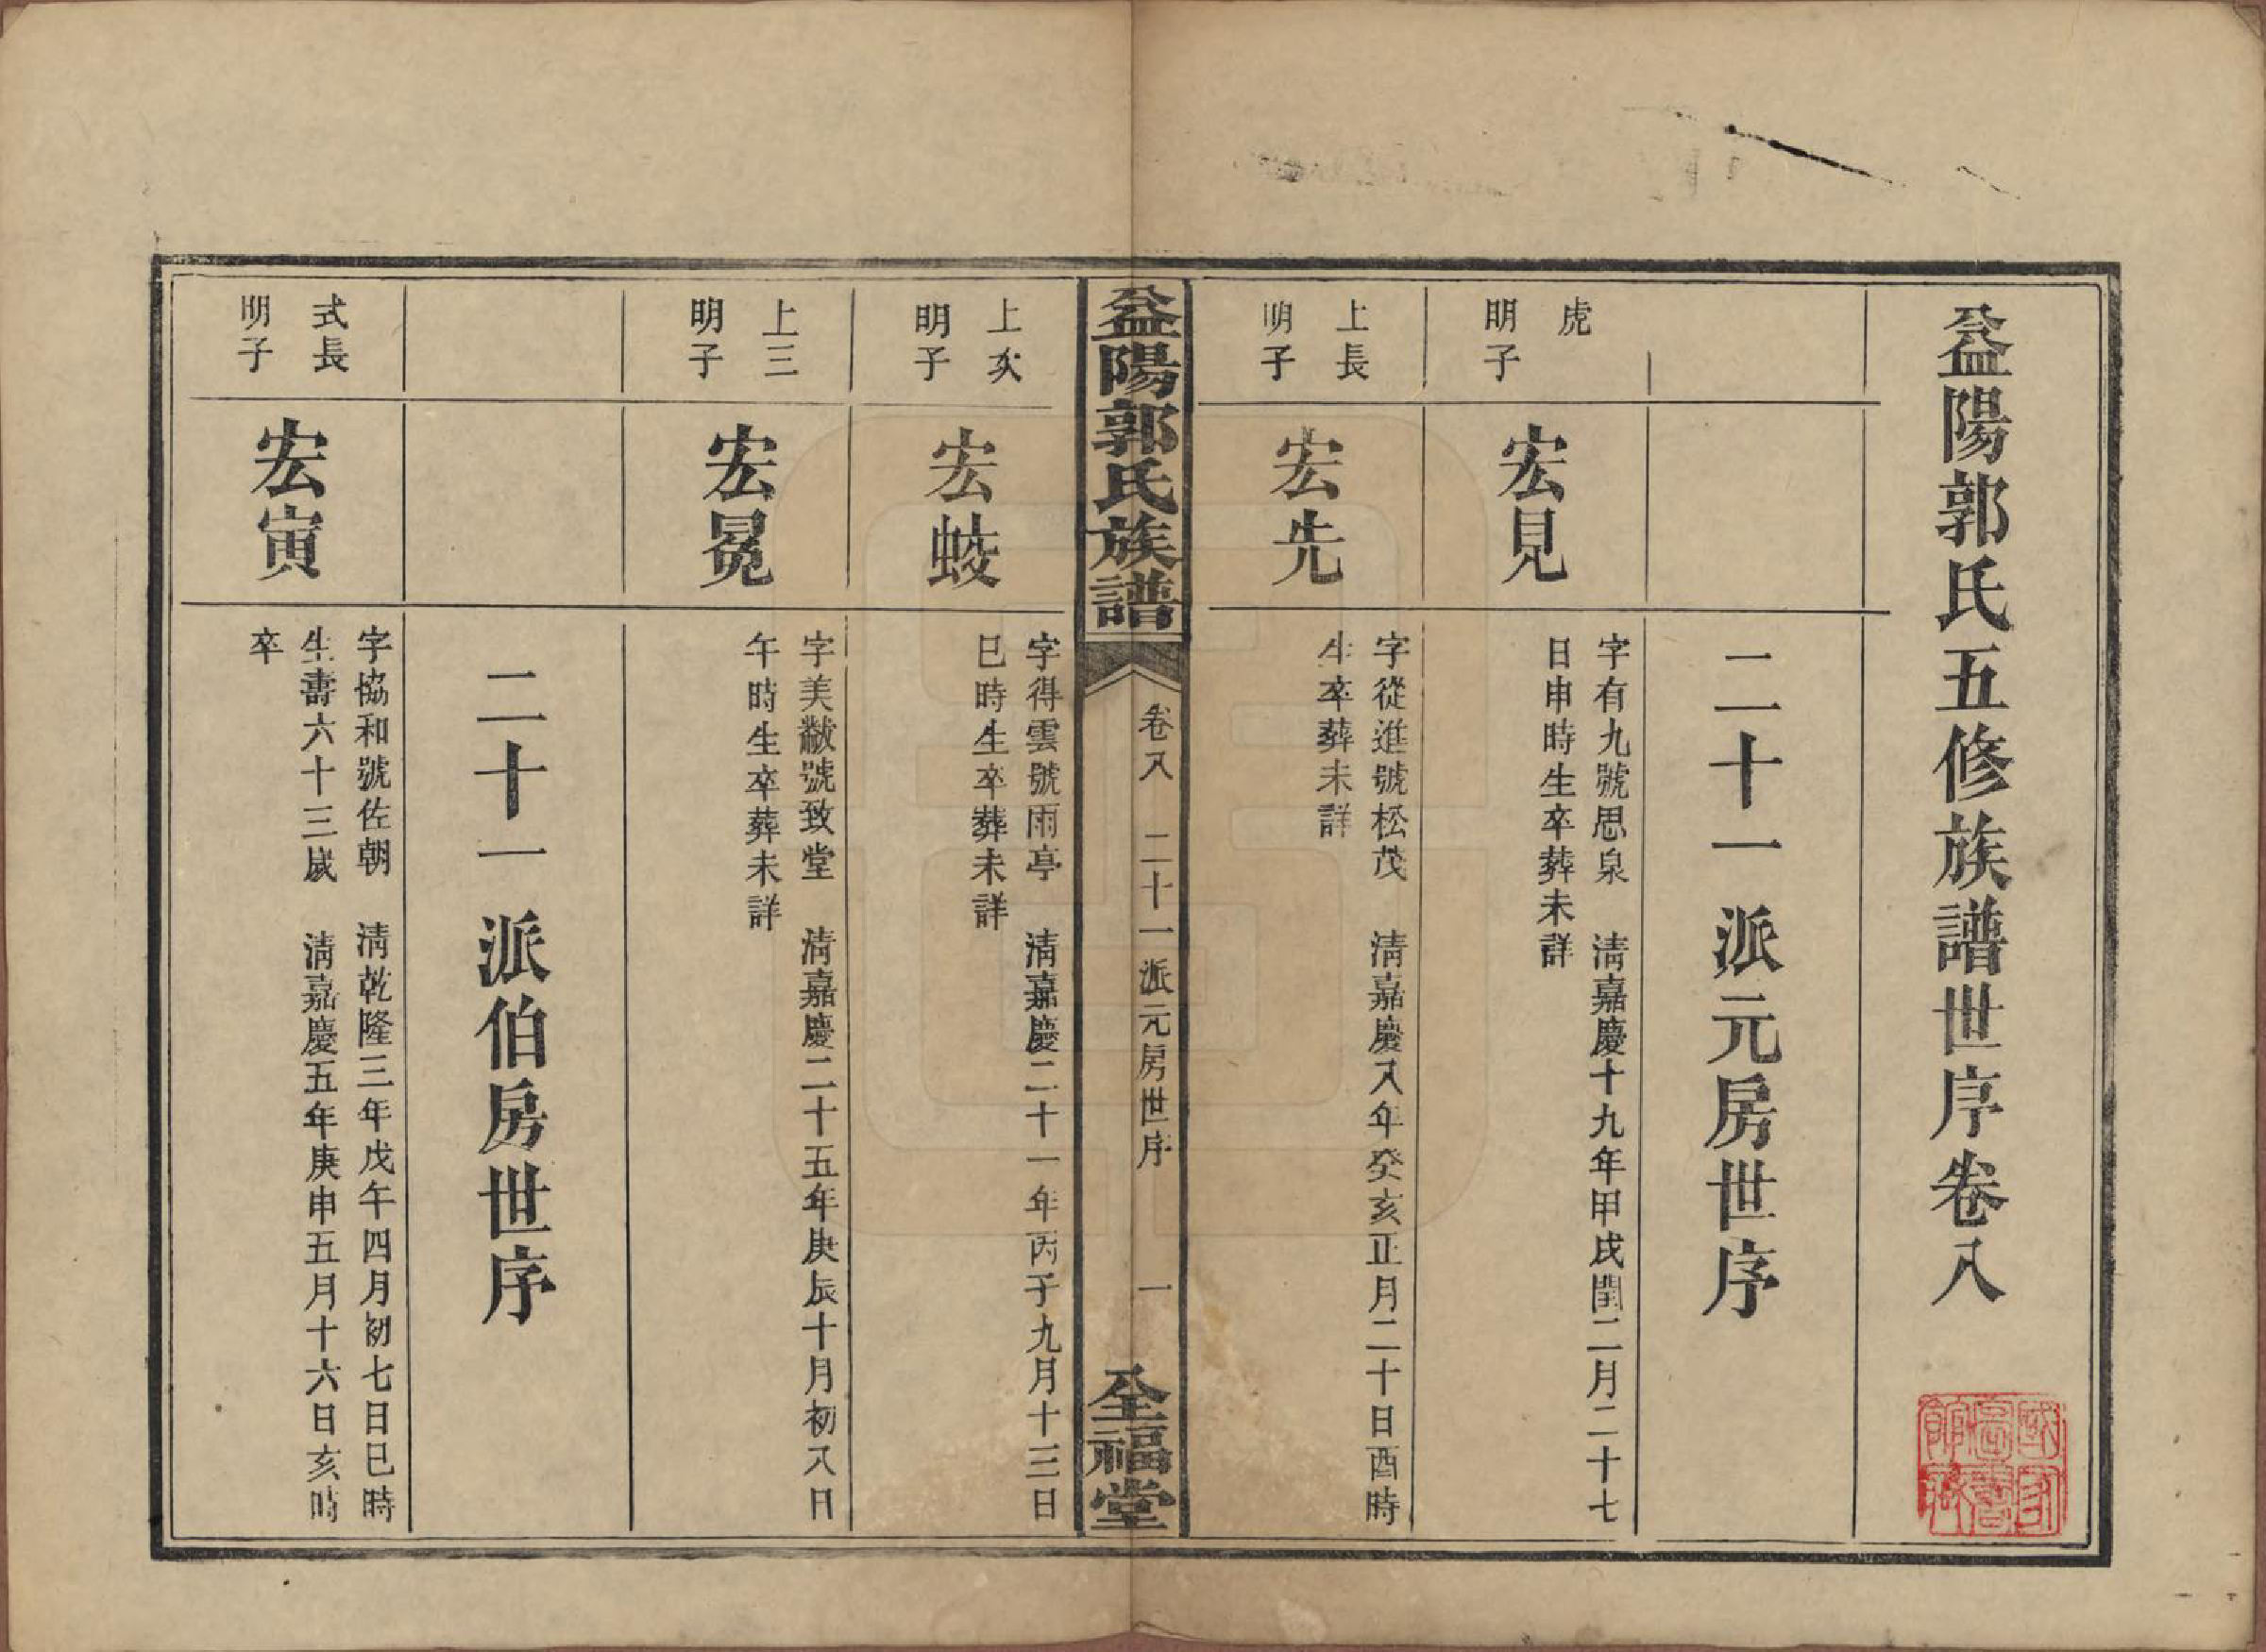 益陽郭氏五修族譜世序卷八
二十一派元房世序
虎
明子
宏見
字有九號思泉 清嘉慶十九年甲戌閏二月二十七
日申時生卒葬未詳
上長
明子
宏先
字從進號松茂 清嘉慶八年癸亥正月二十日酉時
生卒葬未詳
益陽郭氏族譜
卷八 二十一派元房世序 一
全福堂
上次
明子
宏蛟
字得雲號雨亭 清嘉慶二十一年丙子九月十三日
巳時生卒葬未詳
上三
明子
宏冕
字美黻號致堂 清嘉慶二十五年庚辰十月初八日
午時生卒葬未詳
二十一派伯房世序
式長
明子
宏寅
字協和號佐朝 清乾隆三年戊午四月初七日巳時
生壽六十三歲 清嘉慶五年庚申五月十六日亥時
卒
國家圖書館藏